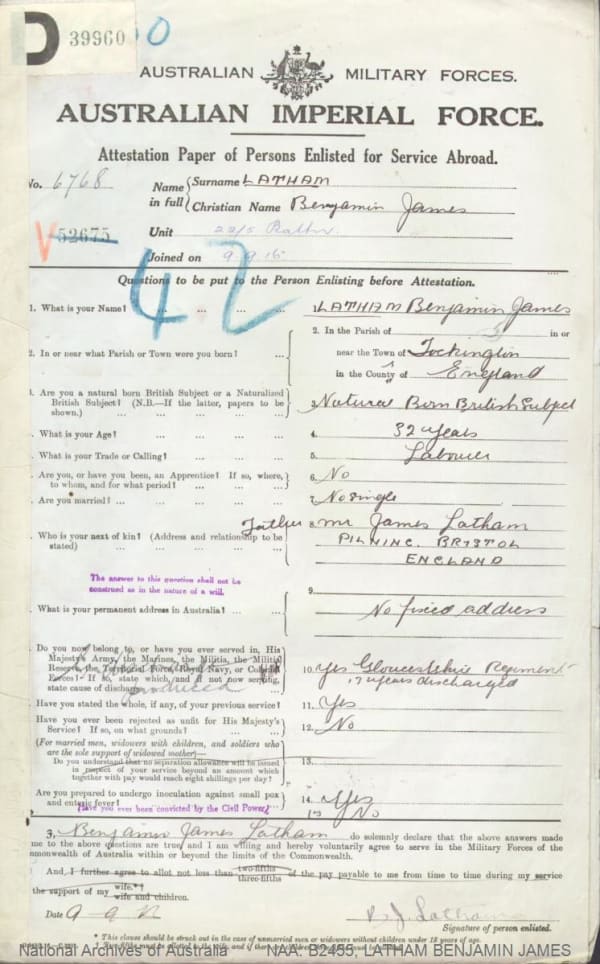 D 39960
AUSTRALIAN MILITARY FORCES.
AUSTRALIAN IMPERIAL FORCE.
Attestation Paper of Persons Enlisted for Service Abroad.
No. 6768
Name in full { Surname LATHAM
Christian Name Benjamin James
V 52675
Unit 22/5
Joined on 9.9.15
42
Questions to be put to the Person Enlisting before Attestation.
1. What is your Name? ... ... ... ... 1. LATHAM Benjamin James
2. In or near what Parish or Town were you born? ... 2. In the Parish of in or
near the Town of Tockington
in the County of England
3. Are you a natural born British Subject or a Naturalized
British Subject? (N.B.—If the latter, papers to be
shown.) ... ... ... ... 3. Natural Born British Subject
. What is your Age? ... ... ... ... 4. 32 years
. What is your Trade or Calling? ... ... ... 5. Labourer
. Are you, or have you been, an Apprentice? If so, where,
to whom, and for what period? ... ... ... 6. No
. Are you married? ... ... ... ... 7. No single
. Who is your next of kin? (Address and relationship to be
stated) ... ... ... Father 8. Mr James Latham
PILNINC. BRYSTOL
ENGLAND
The answer to this question shall not be
construed as in the nature of a will.
. What is your permanent address in Australia? ... ... 9.
No fixed address
Do you now belong to, or have you ever served in, His
Majesty's Army, the Marines, the Militia, the Militia
Reserve, the Territorial Force, Royal Navy, or Colonial
Forces? If so, state which, and if not now serving,
state cause of discharge
produced
10. Yes Gloucestshire Regiment
17 years discharged
Have you stated the whole, if any, of your previous service? 11. Yes
Have you ever been rejected as unfit for His Majesty's
Service? If so, on what grounds? ... ... 12. No
(For married men, widowers with children, and soldiers who
are the sole support of widowed mother)—
Do you understand that no separation allowance will be issued
in respect of your service beyond an amount which
together with pay would reach eight shillings per day? 13.
Are you prepared to undergo inoculation against small pox
and enteric fever? 14. Yes
Have you ever been convicted by the Civil Power? 15 No
I, Benjamin James Latham do solemnly declare that the above answers made
me to the above questions are true, and I am willing and hereby voluntarily agree to serve in the Military Forces of the
mmonwealth of Australia within or beyond the limits of the Commonwealth.
And, I further agree to allot not less than two-fifths three-fifths of the pay payable to me from time to time during my service
the support of my wife.*†
wife and children.
Date 9-9-
B. J. Latham
Signature of person enlisted.
* This clause should be struck out in the case of unmarried men or widowers without children under 18 years of age.
National Archives of Australia NAA: B2455, LATHAM BENJAMIN JAMES